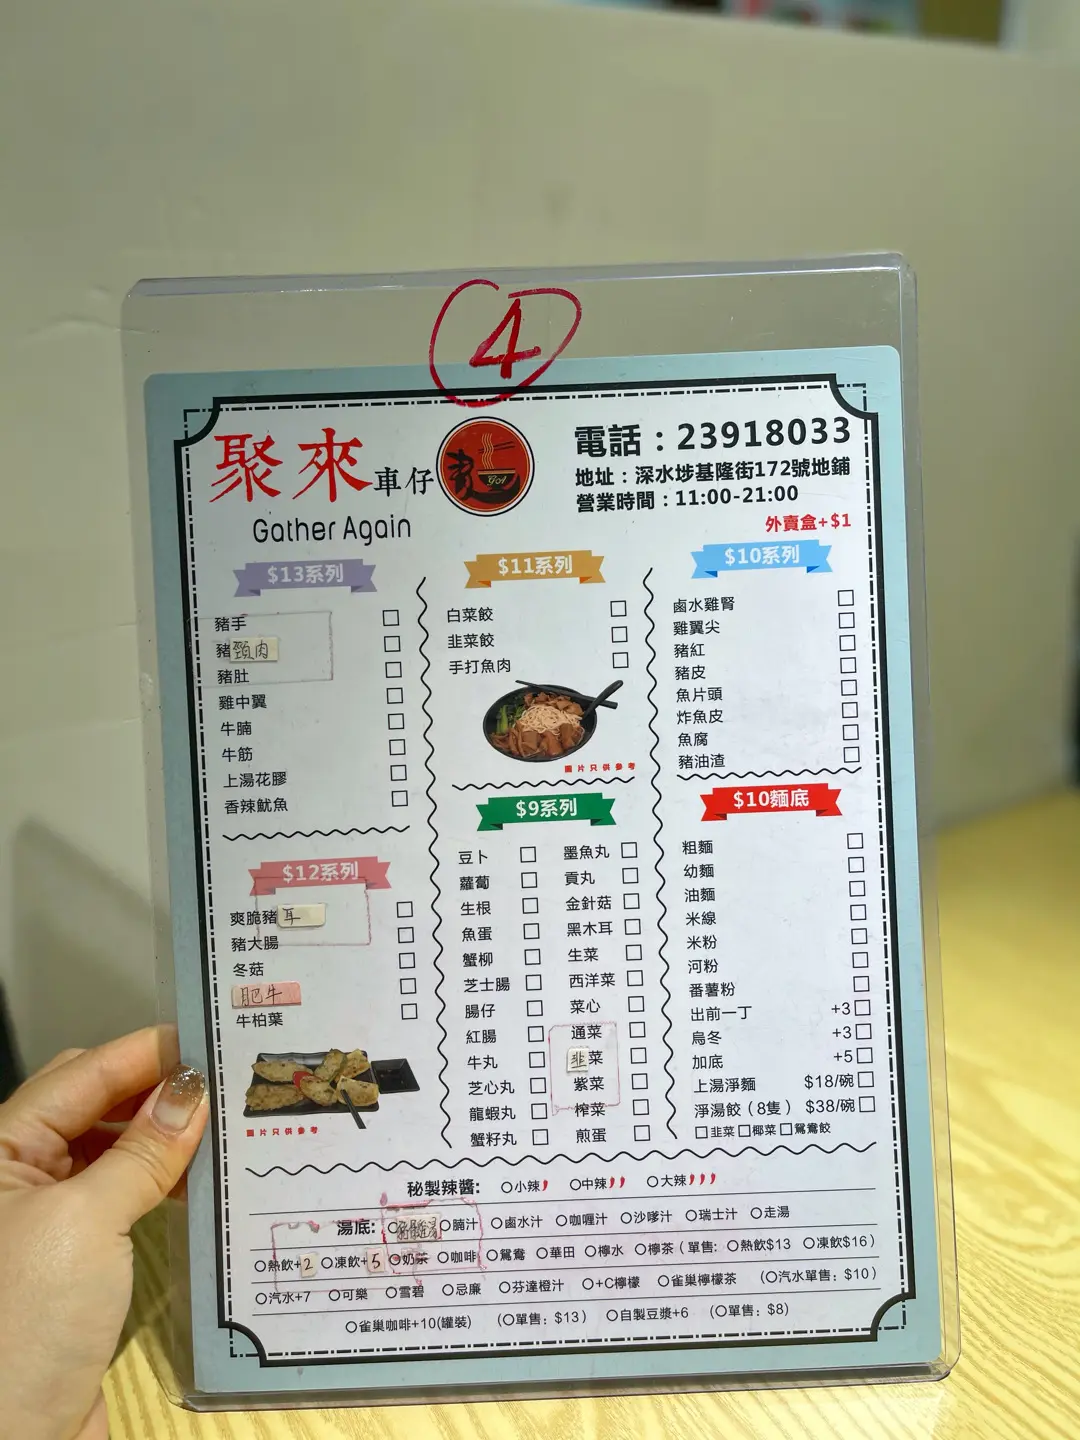 4
聚來車仔麵
got
Gather Again
電話：23918033
地址：深水埗基隆街172號地鋪
營業時間：11:00-21:00
外賣盒+$1
$13系列
豬手
豬頸肉
豬肚
雞中翼
牛腩
牛筋
上湯花膠
香辣魷魚
$12系列
爽脆豬耳
豬大腸
冬菇
肥牛
牛柏葉
圖片只供參考
$11系列
白菜餃
韭菜餃
手打魚肉
圖片只供參考
$9系列
豆卜
蘿蔔
生根
魚蛋
蟹柳
芝士腸
腸仔
紅腸
牛丸
芝心丸
龍蝦丸
蟹籽丸
墨魚丸
貢丸
金針菇
黑木耳
生菜
西洋菜
菜心
通菜
韭菜
紫菜
榨菜
煎蛋
$10系列
鹵水雞腎
雞翼尖
豬紅
豬皮
魚片頭
炸魚皮
魚腐
豬油渣
$10麵底
粗麵
幼麵
油麵
米線
米粉
河粉
番薯粉
出前一丁 +3
烏冬 +3
加底 +5
上湯淨麵 $18/碗
淨湯餃（8隻） $38/碗
韭菜 椰菜 鴛鴦餃
秘製辣醬: 小辣 中辣 大辣
湯底: 腩汁 鹵水汁 咖喱汁 沙嗲汁 瑞士汁 走湯
熱飲+2 凍飲+5 奶茶 咖啡 鴛鴦 華田 檸水 檸茶（單售: 熱飲$13 凍飲$16）
汽水+7 可樂 雪碧 忌廉 芬達橙汁 +C檸檬 雀巢檸檬茶 （汽水單售: $10）
雀巢咖啡+10(罐裝) （單售: $13） 自製豆漿+6 （單售: $8)